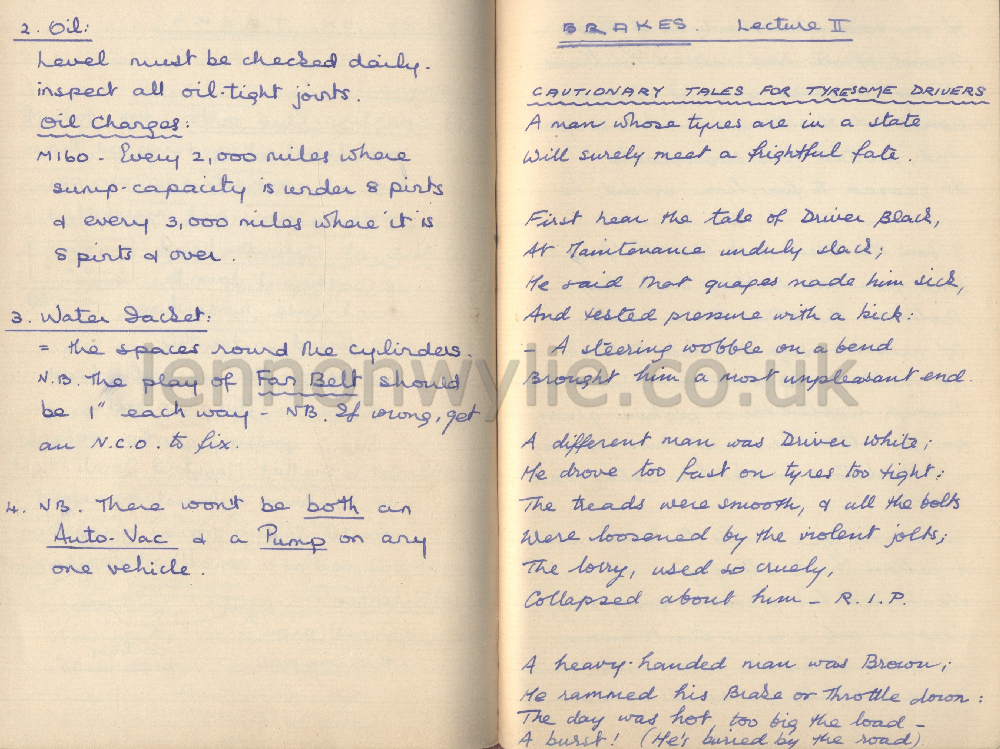 2. Oil:
Level must be checked daily.
inspect all oil-tight joints.
Oil Changes:
M160 - Every 2,000 miles where
sump-capacity is under 8 pints
& every 3,000 miles where it is
8 pints & over.
3. Water Jacket:
= the spaces round the cylinders.
N.B. The play of Fan Belt should
be 1" each way - NB. If wrong, get
an N.C.O. to fix.
4. NB. There won't be both an
Auto-Vac & a Pump on any
one vehicle.
BRAKES. Lecture II
CAUTIONARY TALES FOR TYRESOME DRIVERS
A man whose tyres are in a state
Will surely meet a frightful fate.
First hear the tale of Driver Black,
At Maintenance unduly slack;
He said that guages made him sick,
And tested pressure with a kick:
- A steering wobble on a bend
Brought him a most unpleasant end.
A different man was Driver White;
He drove too fast on tyres too tight:
The treads were smooth, & all the bolts
Were loosened by the violent jolts;
The lorry, used so cruely,
Collapsed about him - R.I.P.
A heavy-handed man was Brown;
He rammed his Brake or Throttle down:
The day was hot, too big the load -
A burst! (He's buried by the road)
lennonwylie.co.uk